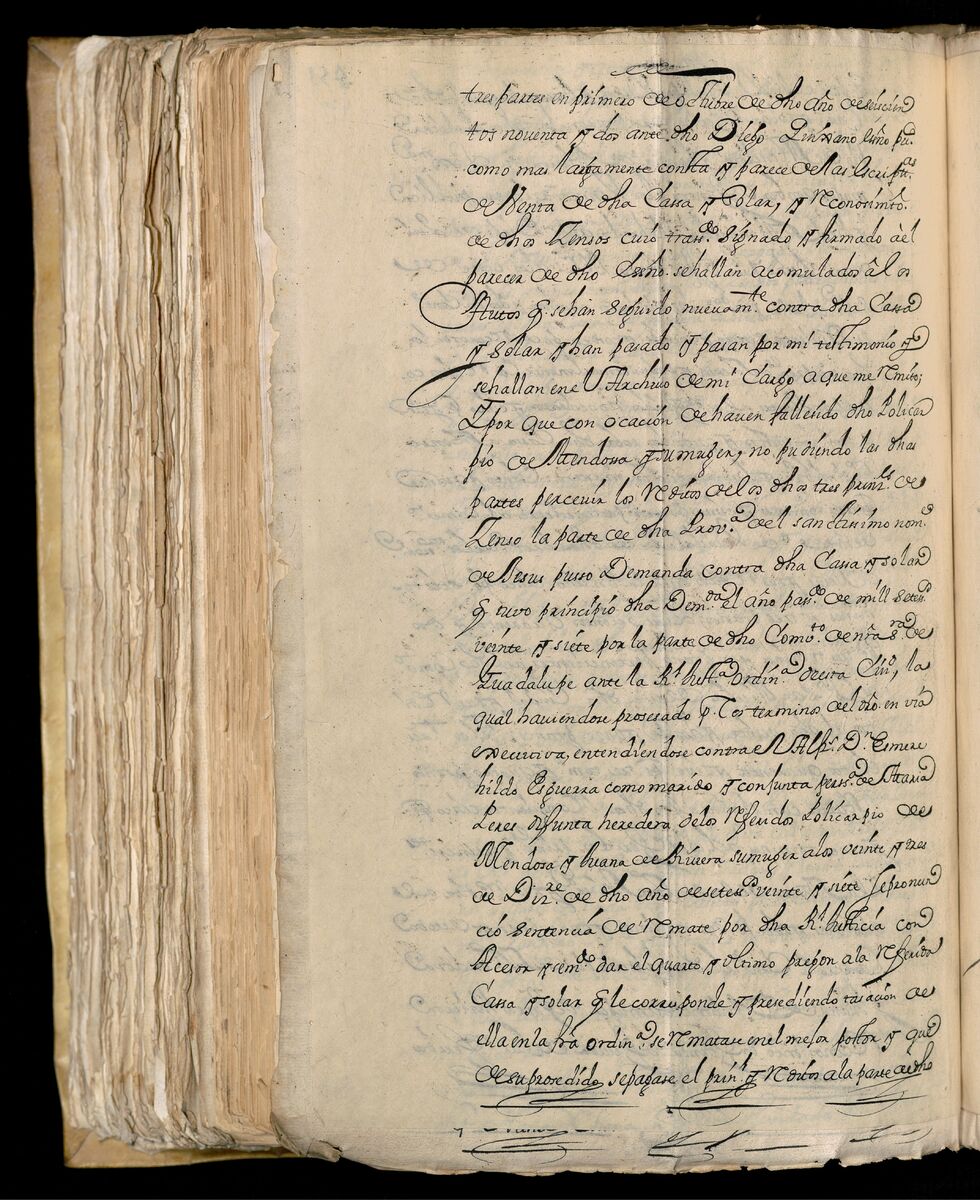 tres partes en primero de octubre de dho año de seiscien
tos noventa y dos ante dho Diego Quixano esno puco
como mas largamente consta y parece de las Escripras
de Venta de dha Cassa y Solar, y Reconosimto.
de dhos Zensos cuio trasdo. signado y firmado àel
parecer de dho Esno. sehallan acomulados âlos
Autos q. sehan seguido nuevamte. contra dha Cassa
y Solar y han pasado y pasan por mi testimonio y
sehallan en el Archivo de mi Cargo a que me Remito;
Y por que con ocacion de haver fallesido dho Policar
pio de Mendossa y su muger, no pudiendo las dhas
partes percevir los Reditos de los dhos tres prinles. de
Zenso la parte de dha Prova. del sanctissimo nome.
de Jesus pusso Demanda contra dha Cassa y solar
q. tuvo principio dha Demda. el año pasdo. de mill setess.
veinte y siete por la parte de dho Combto. de nra sra. de
Guadalupe ante la Rl. Justa. ordina. desta Ciud, la
qual haviendose prosesado p. los terminos del dro. en via
executiva, entendiendose contra el Alfs. Dn. Esmere
hildo Esguerra como marido y conjunta perssa. de Maria
Peres difunta heredera de los Referidos Policarpio de
Mendosa y Juana de Rivera su muger alos veinte y tres
de Dizre. de dho año de setess. veinte y siete sepronun
ció sentencia de Remate por dha Rl. Justicia con
Acesor y semdo. dar el quarto y ultimo pregon ala Referida
Cassa y solar q. le corresponde y presediendo tasacion de
ella en la fra ordina. se Rematase en el mejor postor y que
de su prosedido sepagase el prinl. y Reditos ala parte de dho